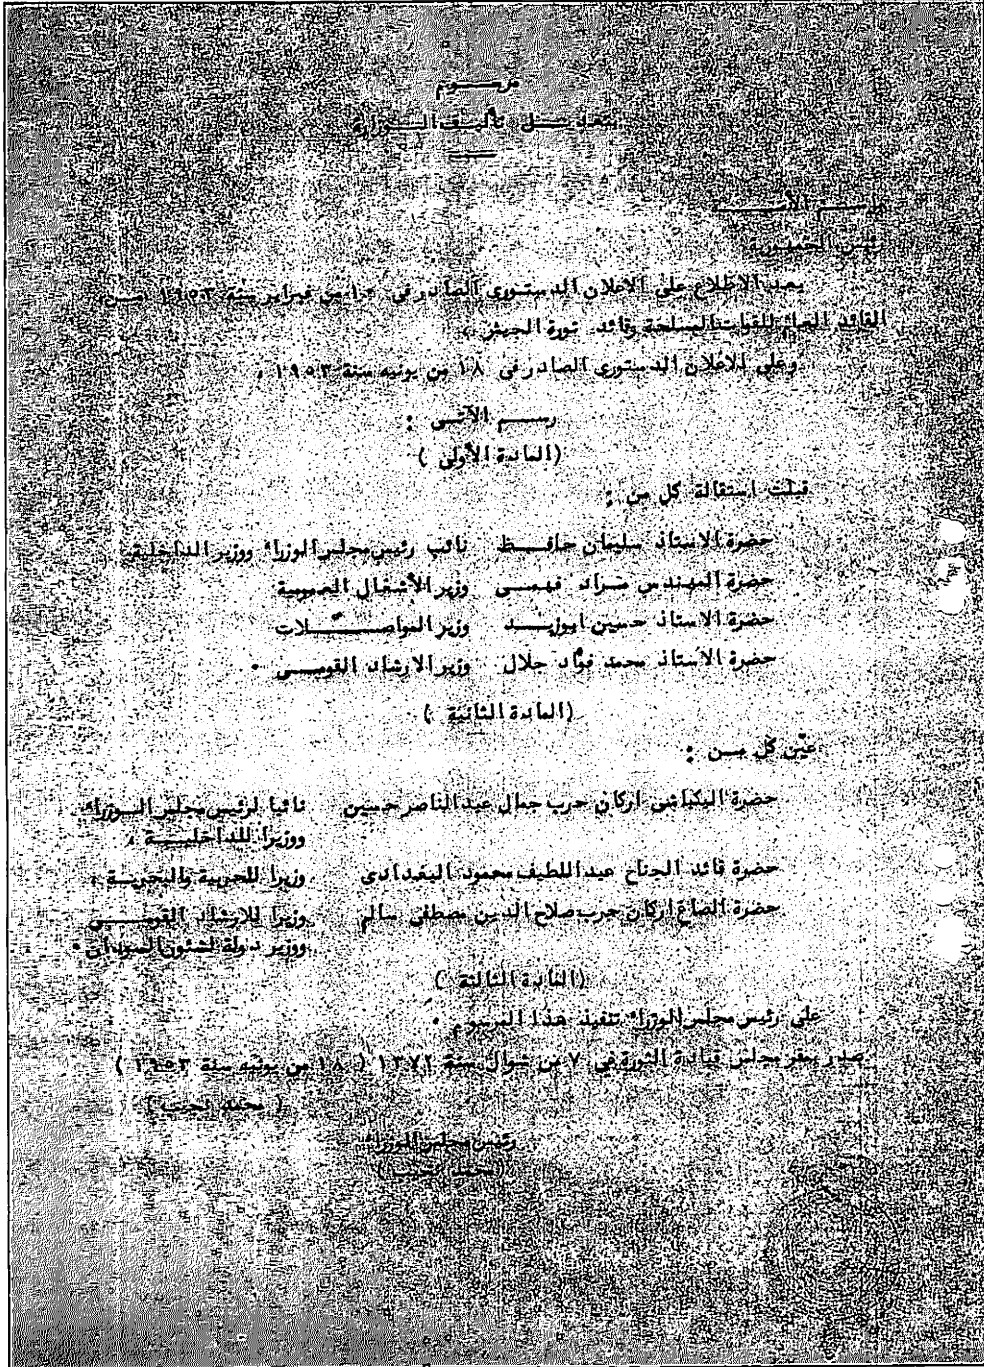 مرسوم
بتعديل تأليف الوزارة
باسم الأمة
رئيس الجمهورية
بعد الاطلاع على الاعلان الدستورى الصادر فى ١٠ من فبراير سنة ١٩٥٣ من
القائد العام للقوات المسلحة وقائد ثورة الجيش ،
وعلى الاعلان الدستورى الصادر فى ١٨ من يونيه سنة ١٩٥٣ ،
رسم الآتى :
(المادة الأولى )
قبلت استقالة كل من :
حضرة الاستاذ سليمان حافظ نائب رئيس مجلس الوزراء ووزير الداخلية
حضرة المهندس مراد فهمى وزير الأشغال العمومية
حضرة الاستاذ حسين ابوزيد وزير المواصلات
حضرة الاستاذ محمد فؤاد جلال وزير الارشاد القومى ٠
(المادة الثانية )
عيّن كل من :
حضرة البكباشى اركان حرب جمال عبد الناصر حسين نائبا لرئيس مجلس الوزراء
ووزيرا للداخلية ،
حضرة قائد الجناح عبد اللطيف محمود البغدادى وزيرا للحربية والبحرية ،
حضرة الصاغ اركان حرب صلاح الدين مصطفى سالم وزيرا للارشاد القومى
ووزير دولة لشئون السودان ٠
(المادة الثالثة )
على رئيس مجلس الوزراء تنفيذ هذا المرسوم ٠
صدر بمقر مجلس قيادة الثورة فى ٧ من شوال سنة ١٣٧٢ ( ١٨ من يونيه سنة ١٩٥٣ )
( محمد نجيب )
رئيس مجلس الوزراء
(محمد نجيب )